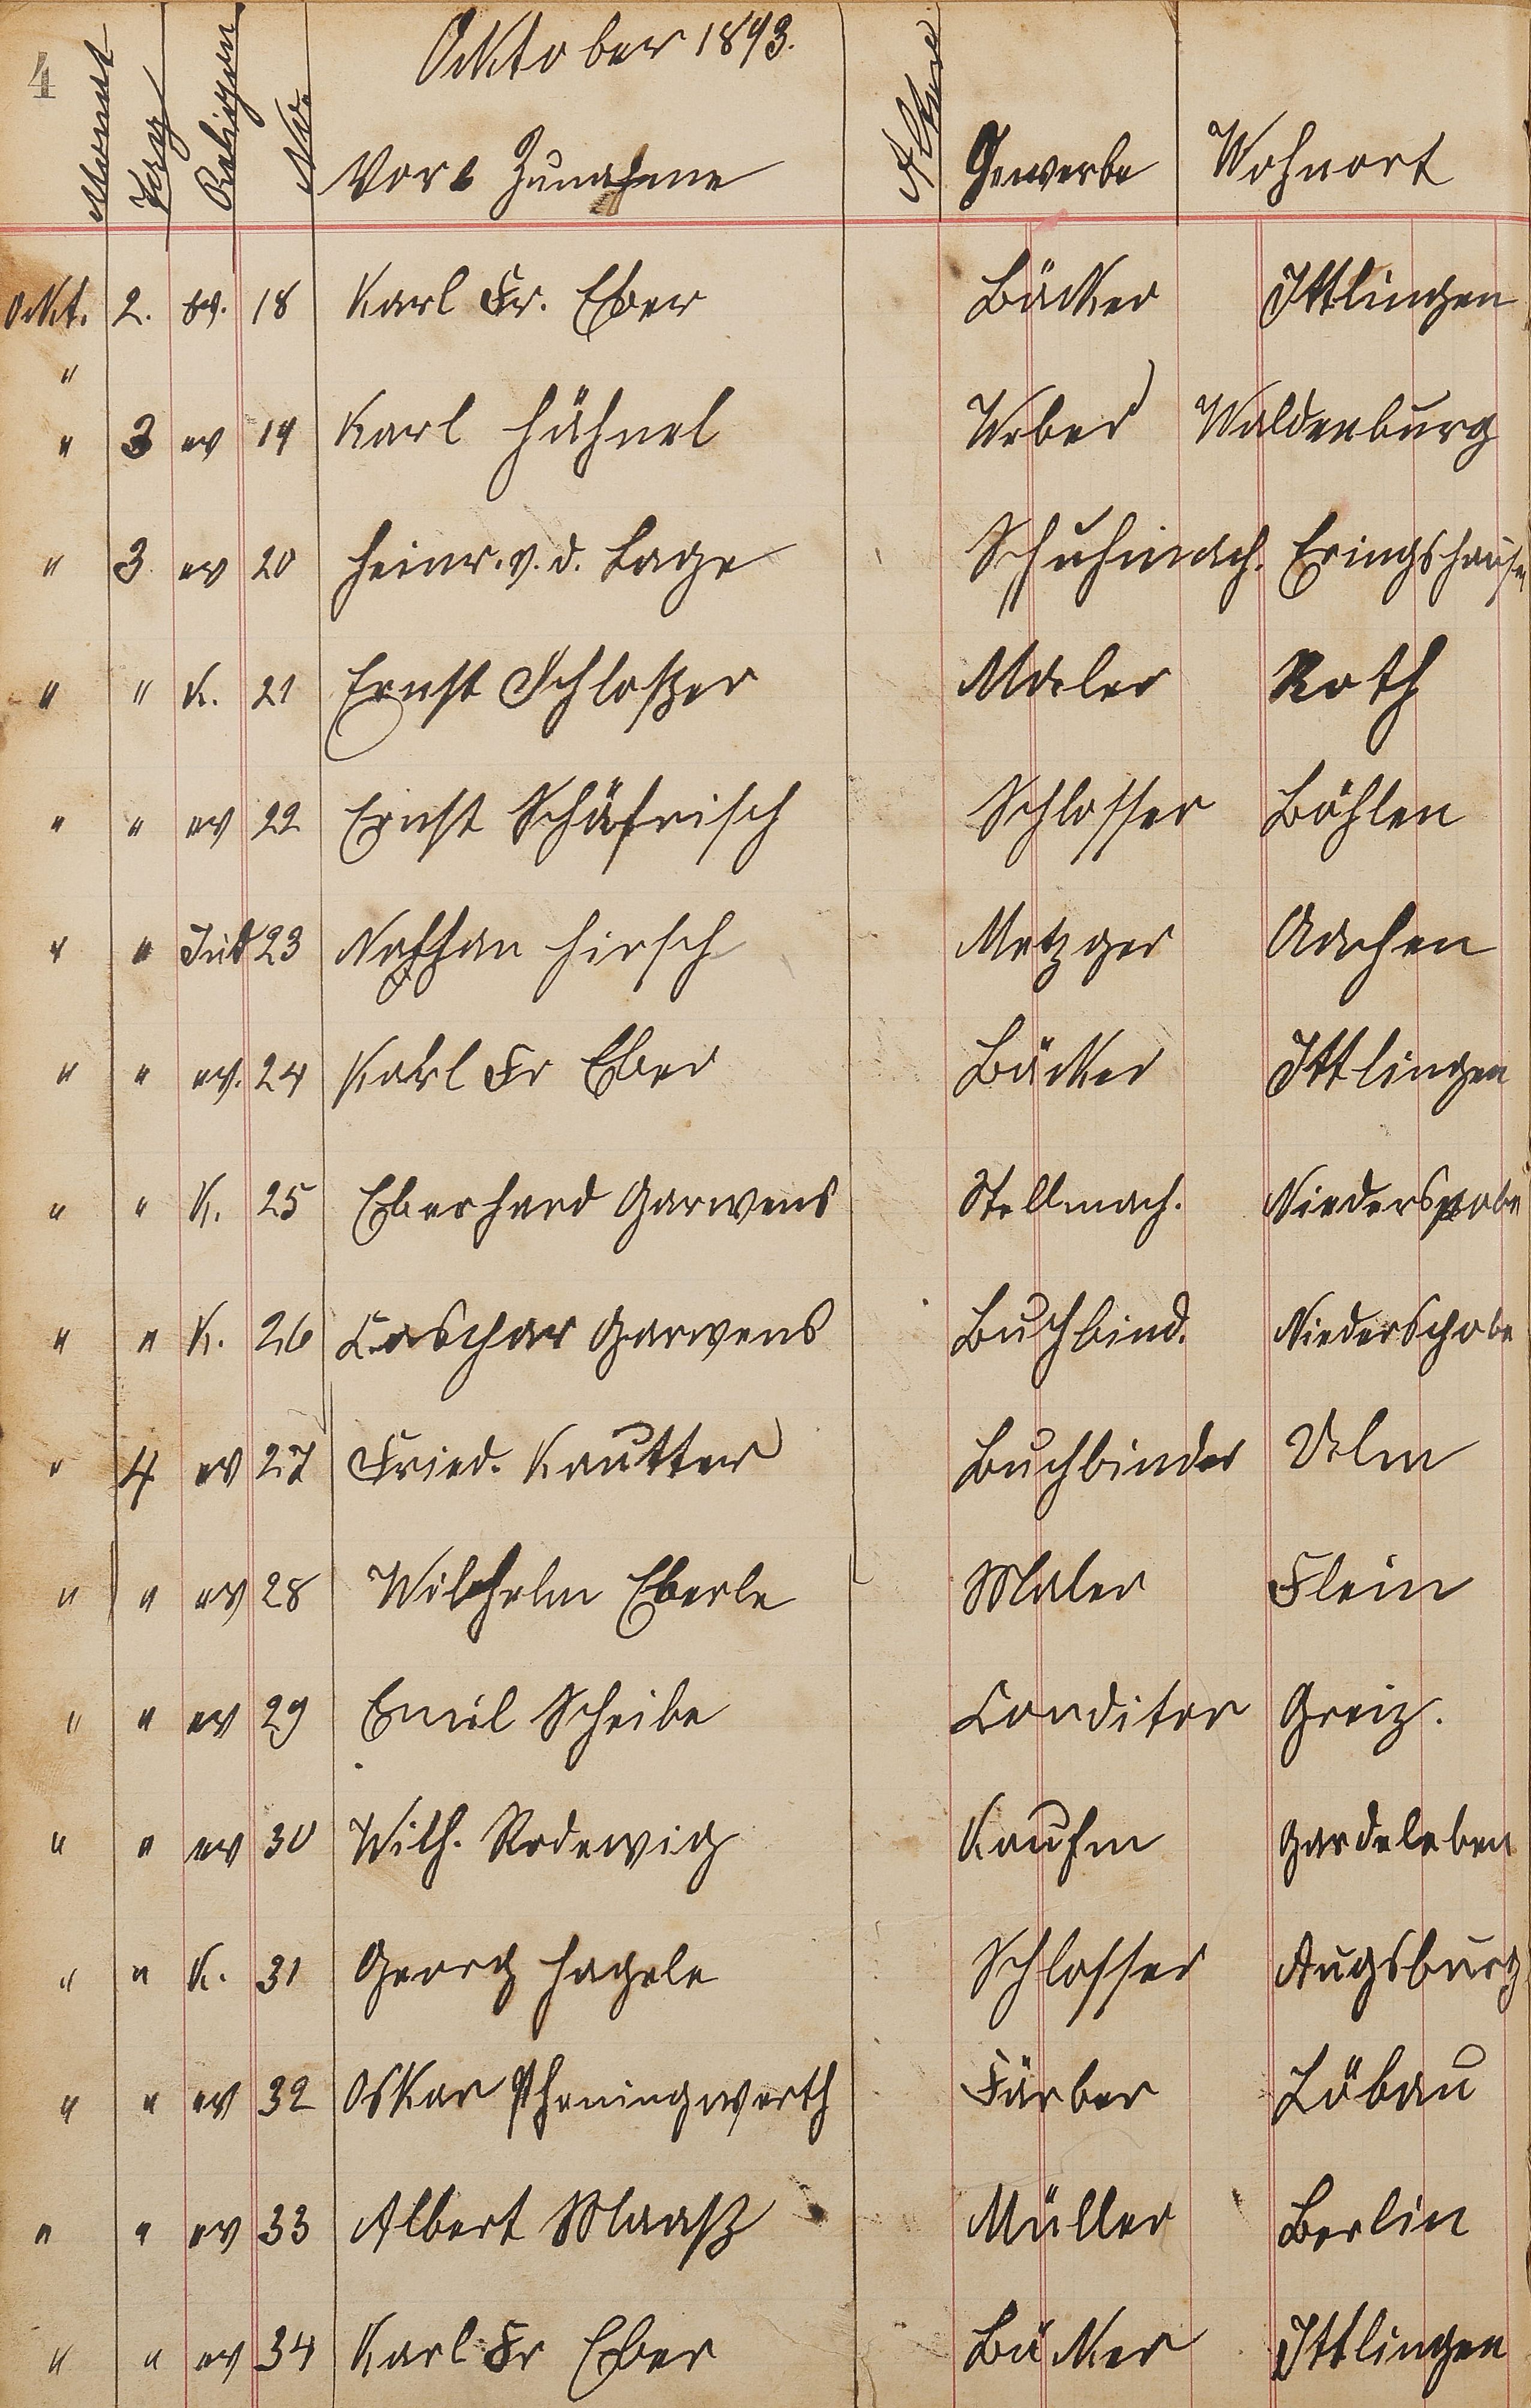 4
Oktober 1893.
Monat Tag Religion No. Vor & Zunahme Alter Gewerbe Wohnort
Okt. 2. ev. 18 Karl Fr. Eber Bäcker Ittlingen
"
" 3 ev 19 Karl Hähnel Weber Waldenburg
" 3 ev 20 Heinr. v. d. Lage Schuhmach. Eringshausen
" " K. 21 Ernst Schloßer Maler Roth
" " ev 22 Ernst Schäfrisch Schlosser Böhlen
" " Jüd 23 Nathan Hirsch Metzger Aachen
" " ev. 24 Karl Fr Eber Bäcker Ittlingen
" " K. 25 Eberhard Garwens Stellmach.
" " K. 26 Caschar Garwens Buchbind. Niederschobe
" 4 ev 27 Fried. Kautter Buchbinder Ulm
" " ev 28 Wilhelm Eberle Maler Flein
" " ev 29 Emil Scheibe Conditor Greiz.
" " ev 30 Wilh. Rodewig Kaufm Gardeleben
" " K. 31 Georg Hagele Schlosser Augsburg
" " ev 32 Oskar Pheningwerth Färber Löbau
" " ev 33 Albert Maaß Müller Berlin
" " ev 34 Karl Fr Eber Bäcker Ittlingen